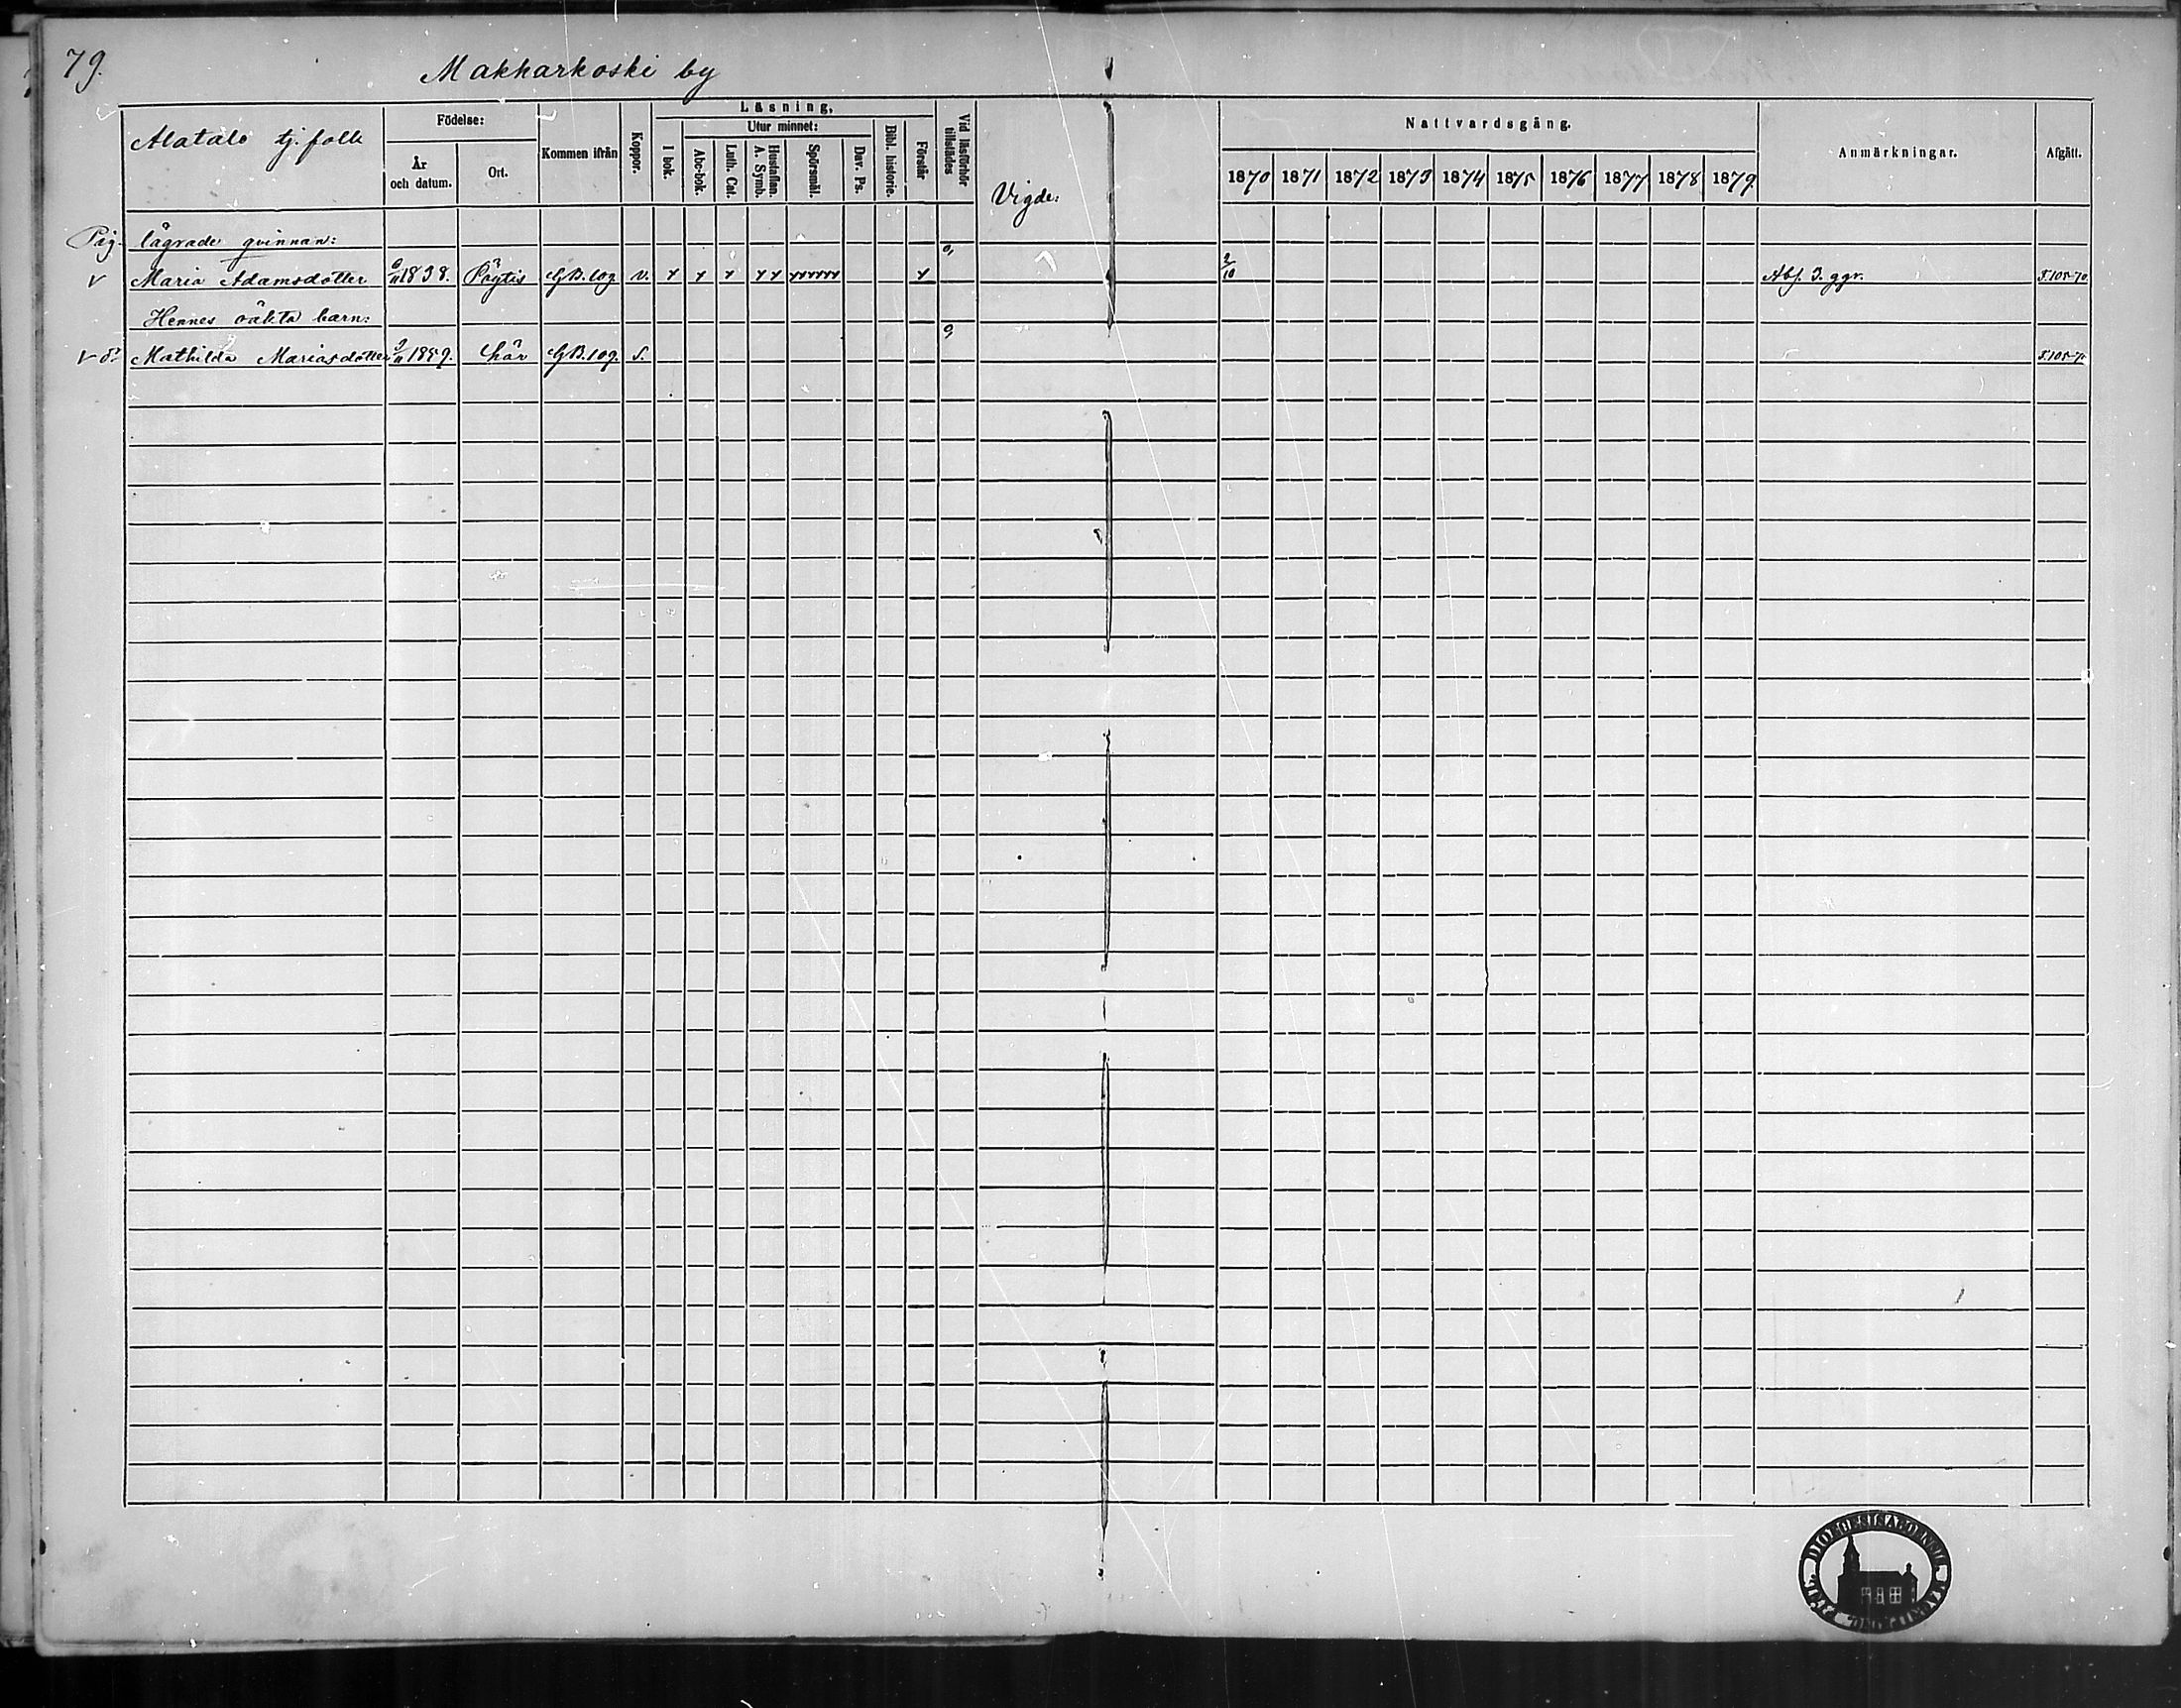 79.
Makkarkoski by
Alatalo tj. folk
Födelse:
År och datum.
Ort.
Kommen ifrån
Koppor.
Läsning,
I bok.
Utur minnet:
Abc-bok.
Luth. Cat.
Hustaflan. A. Symb.
Spörsmål.
Dav. Ps.
Bibl. historie.
Förstår
Vid läsförhör tillstädes
Vigde:
Nattvardsgång.
1870 1871 1872 1873 1874 1875 1876 1877 1878 1879
Anmärkningar.
Afgått.
Pig. lägrade qvinnan: 0,
v Maria Adamsdotter 6/11 1838. Pöytis GB. 109. v. x x x x x xxxxxx x 2/10 Abs. 3. ggr. F.105-70
Hennes oäkta barn: 9,
v Mathilda Mariasdotter 9/11 1859. här GB. 109. s. F.105-70
DIOECESIS ABOENSIS